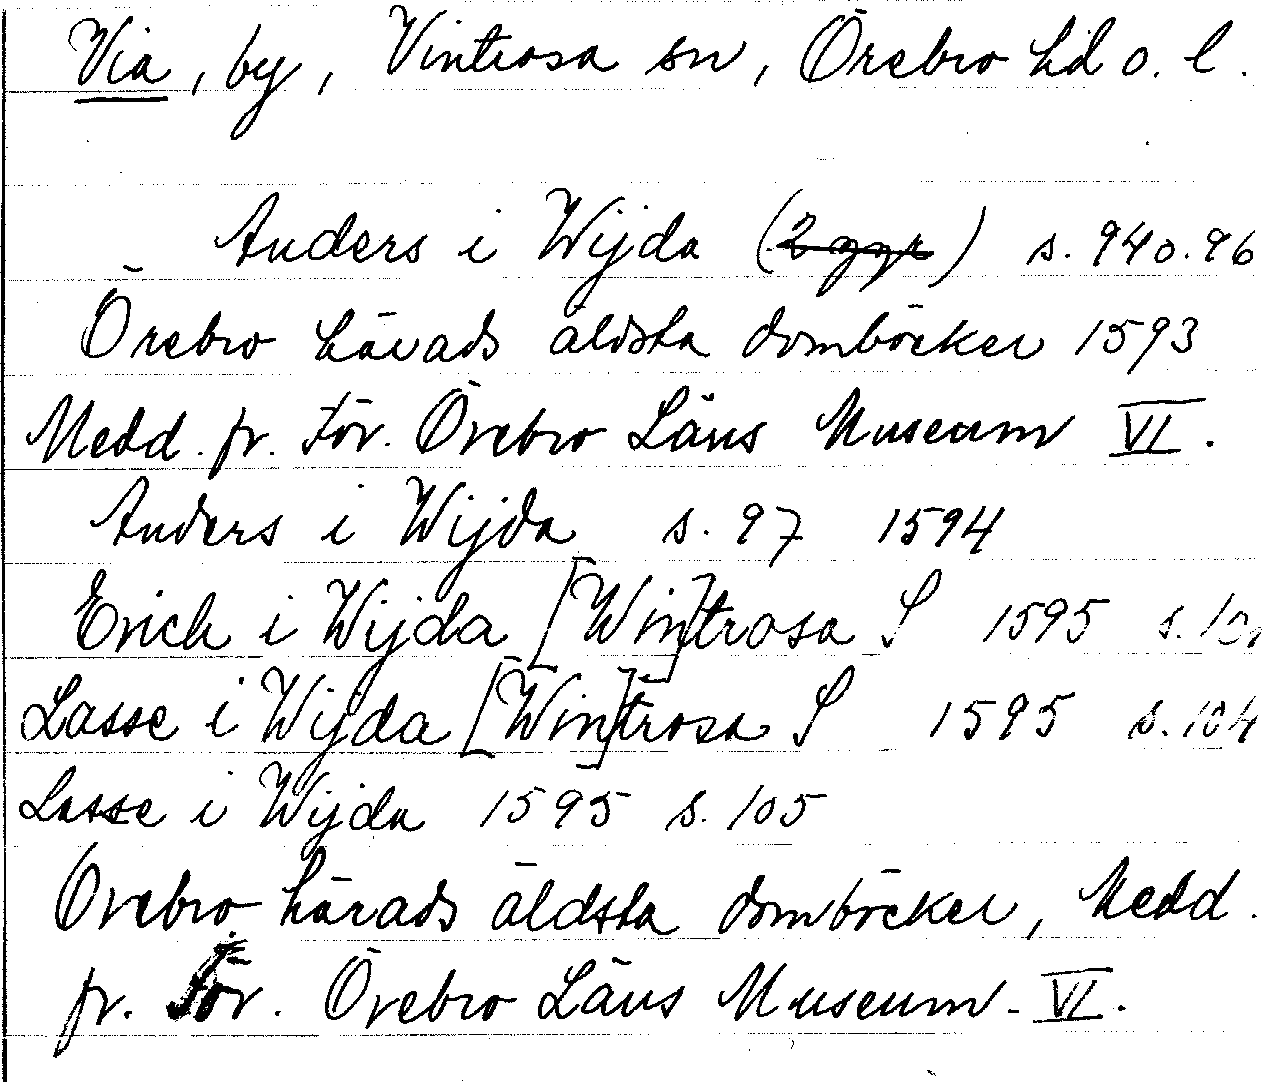 Via, by, Vintrosa sn, Örebro hd o. l.
Anders i Wijda (2 ggr) s. 94 o. 96
Örebro härads äldsta domböcker 1593
Medd. fr. För. Örebro Läns Museum VI.
Anders i Wijda s. 97 1594
Erich i Wijda [Win]trosa S 1595 s.
Lasse i Wijda [Win]trosa S 1595 s. 104
Lasse i Wijda 1595 s. 105
Örebro härads äldsta domböcker, Medd.
fr. För. Örebro Läns Museum - VI.